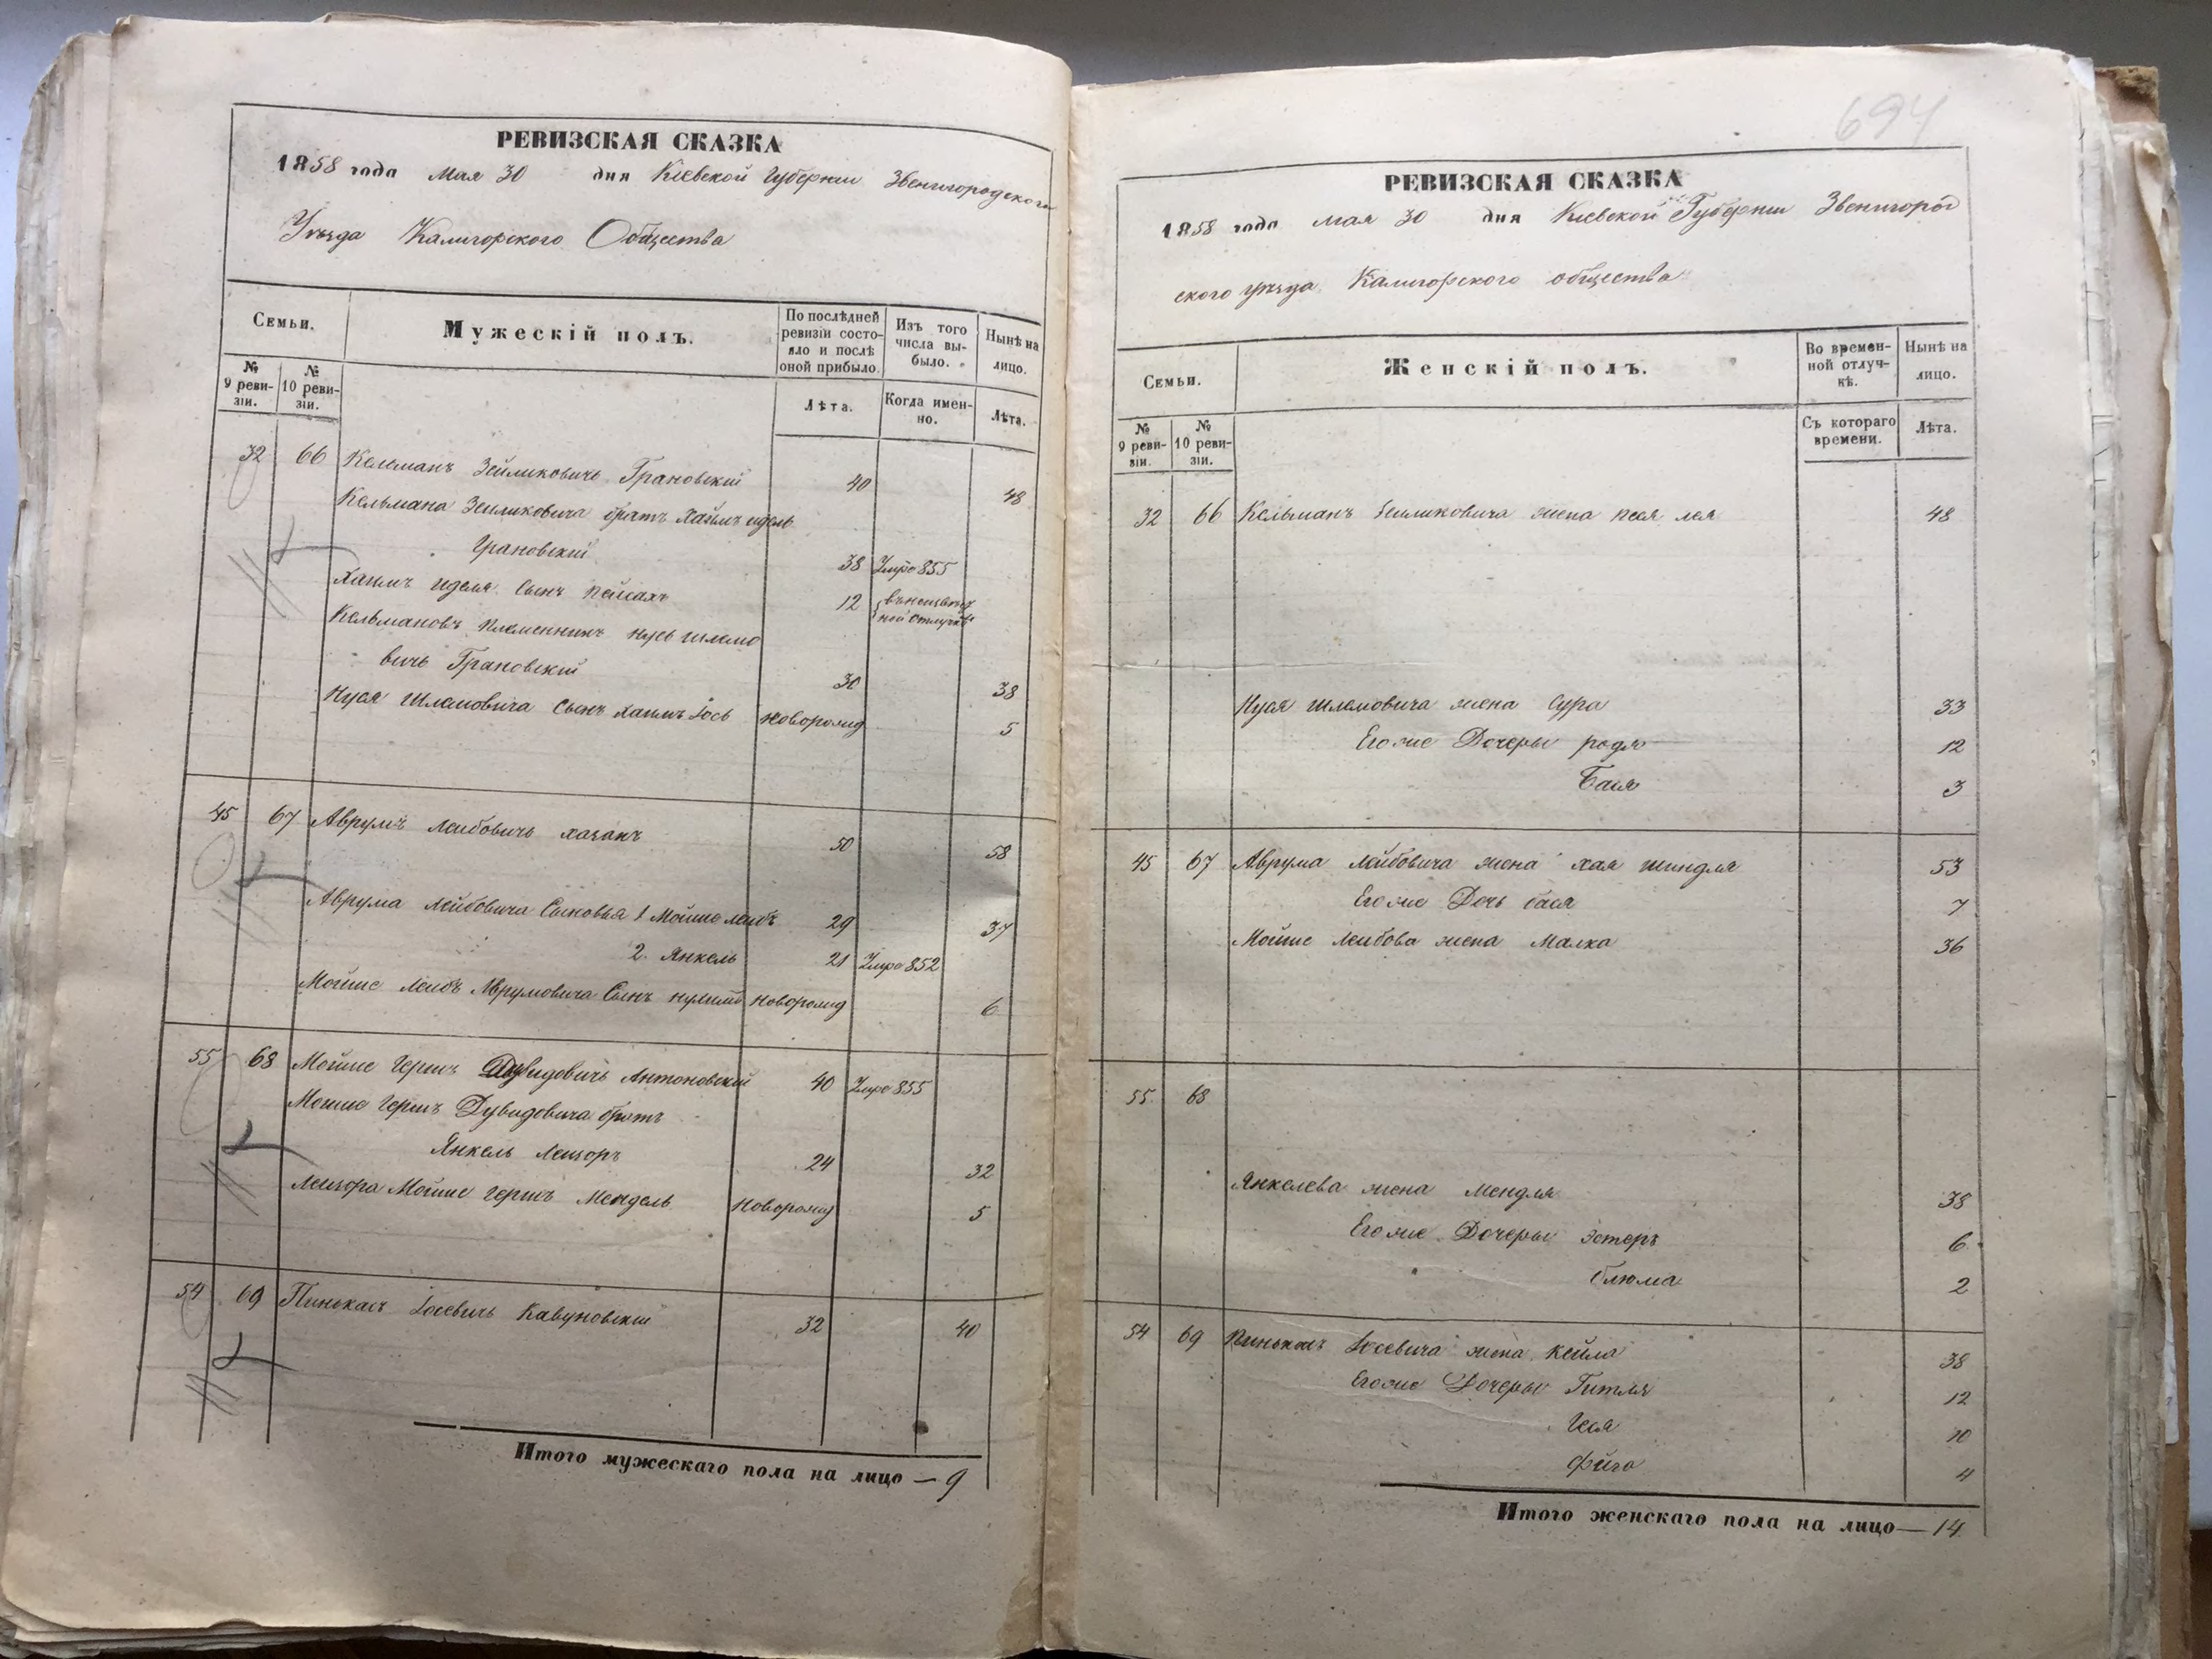 РЕВИЗСКАЯ СКАЗКА
1858 года мая 30 дня Кіевской Губерніи Звенигородского
Уѣзда Калигорского Общества
Семьи.
Мужескій полъ.
По послѣдней ревизіи состояло и послѣ оной прибыло.
Изъ того числа выбыло.
Нынѣ на лицо.
№ 9 ревизіи.
№ 10 ревизіи.
Лѣта.
Когда именно.
Лѣта.
32 66 Кельманъ Зейликовичь Грановскій 40 48
Кельмана Зейликовича братъ Хаимъ идель
Грановскій 38 Умре 855
Хаимъ иделя Сынъ Пейсахъ 12
Кельмановъ племенникъ нусь шлемо
вичь Грановскій 30 38
Нуся Шлемовича Сынъ хаимъ Іось новорожд 5
45 67 Аврумъ Лейбовичь хазанъ 50 58
Аврума Лейбовича Сыновья 1 Мойше лейбъ 29 37
2. Янкель 21 Умре 852
Мойше Лейбъ Аврумовича Сынъ новорожд 6
55 68 Мойше Гершъ Дувидовичь Антоновскій 40 Умре 855
Мойше Гершъ Дувидовича братъ
Янкель Лейзоръ 24 32
Лейзора Мойше гершъ Мендель новорожд 5
54 69 Пинькасъ Іосевичь Кавуновскій 32 40
Итого мужескаго пола на лицо — 9
694
РЕВИЗСКАЯ СКАЗКА
1858 года мая 30 дня Кіевской Губерніи Звенигород
ского уѣзда Калигорского общества
Семьи.
Женскій полъ.
Во временной отлучкѣ.
Нынѣ на лицо.
№ 9 ревизіи.
№ 10 ревизіи.
Съ котораго времени.
Лѣта.
32 66 Кельманъ Зейликовича жена песя лея 48
Нуся шлемовича жена Сура 33
Его же Дочеры родя 12
Бася 3
45 67 Аврума Лейбовича жена хая шиндля 53
Его же Дочь бася 7
Мойше Лейбова жена Малка 36
55 68
Янкелева жена Мендля 38
Его же Дочеры Эстеръ 6
блюма 2
54 69 Пинькасъ Іосевича жена Кейла 38
Его же Дочеры Гитля 12
Геся 10
фейга 4
Итого женскаго пола на лицо — 14